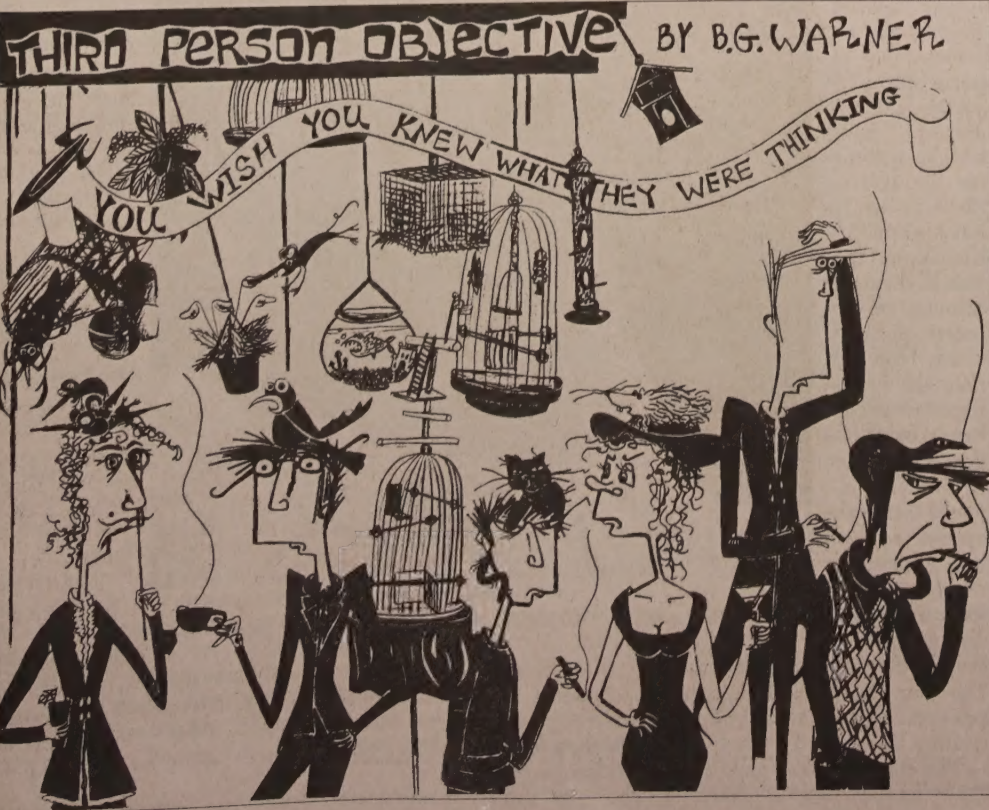 THIRD PERSON OBJECTIVE BY B.G. WARNER
YOU WISH YOU KNEW WHAT THEY WERE THINKING